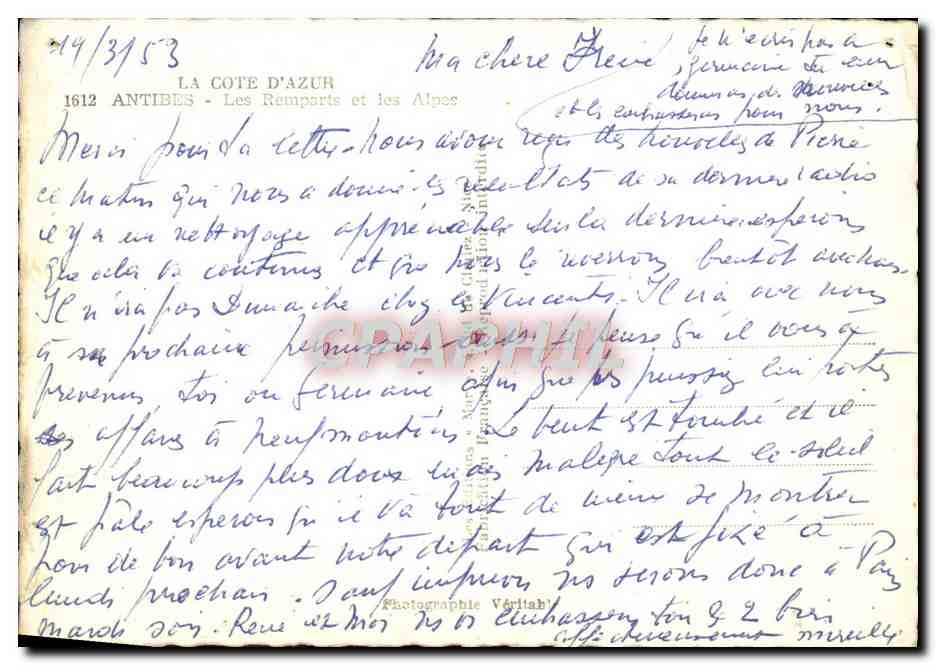 19/3/53
Ma chere Irène
Je n'écris pas à
Germaine tu lui
donneras des nouvelles
et tu l'embrasseras pour nous.
LA COTE D'AZUR
1612 ANTIBES - Les Remparts et les Alpes
Merci pour ta lettre. Nous avons reçu des nouvelles de Pierre
ce matin qui nous a donné les résultats de sa dernière radio
il y a un nettoyage appréciable sur la dernière. esperons
que cela va continuer et que nous le reverrons bientôt avec nous.
Il n'ira pas Dimanche chez les Vincents. Il ira avec nous
à sa prochaine permission. Je pense qu'il vous a
prevenus, toi ou Germaine, afin que vous puissiez lui porter
ses affaires à Neufmoutiers. Le vent est tombé et il
fait beaucoup plus doux mais malgré tout le soleil
est pâle esperons qu'il va tout de même se montrer
pour de bon avant notre départ qui est fixé à
lundi prochain. Sauf imprévu ns serons donc à Paris
mardi soir. René et moi ns vs embrassons tous 2 bien
affectueusement Mireille
Photographie Véritable
Fabrication Française - Reproduction Interdite
CPAPHIL